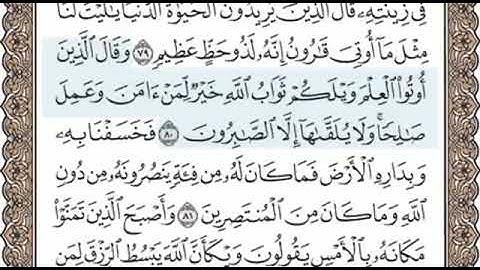 فِي زِينَتِهِۦ قَالَ ٱلَّذِينَ يُرِيدُونَ ٱلْحَيَوٰةَ ٱلدُّنْيَا يَٰلَيْتَ لَنَا
مِثْلَ مَآ أُوتِيَ قَٰرُونُ إِنَّهُۥ لَذُو حَظٍّ عَظِيمٍ ٧٩ وَقَالَ ٱلَّذِينَ
أُوتُوا۟ ٱلْعِلْمَ وَيْلَكُمْ ثَوَابُ ٱللَّهِ خَيْرٌ لِّمَنْ ءَامَنَ وَعَمِلَ
صَٰلِحًا وَلَا يُلَقَّىٰهَآ إِلَّا ٱلصَّٰبِرُونَ ٨٠ فَخَسَفْنَا بِهِۦ
وَبِدَارِهِ ٱلْأَرْضَ فَمَا كَانَ لَهُۥ مِن فِئَةٍ يَنصُرُونَهُۥ مِن دُونِ
ٱللَّهِ وَمَا كَانَ مِنَ ٱلْمُنتَصِرِينَ ٨١ وَأَصْبَحَ ٱلَّذِينَ تَمَنَّوْا۟
مَكَانَهُۥ بِٱلْأَمْسِ يَقُولُونَ وَيْكَأَنَّ ٱللَّهَ يَبْسُطُ ٱلرِّزْقَ لِمَن